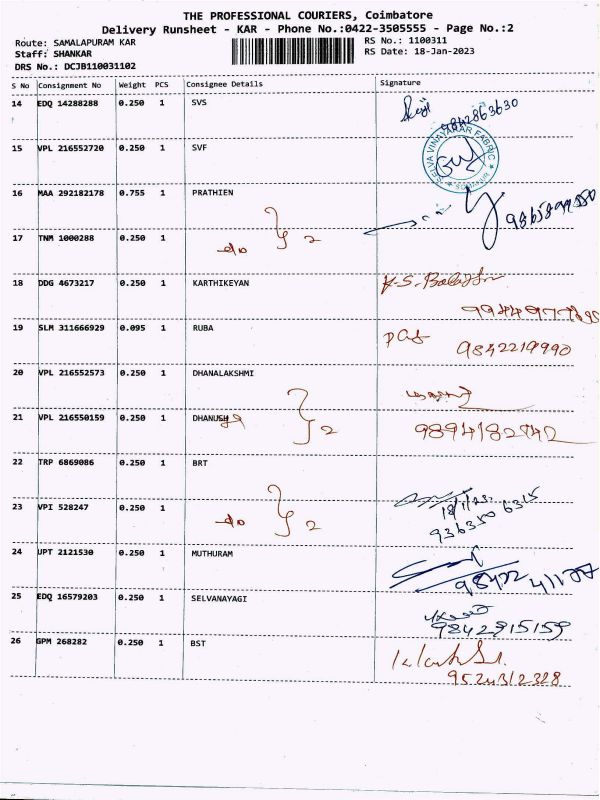 THE PROFESSIONAL COURIERS, Coimbatore
Delivery Runsheet - KAR - Phone No.:0422-3505555 - Page No.:2
Route: SAMALAPURAM KAR
RS No.: 1100311
Staff: SHANKAR
RS Date: 18-Jan-2023
DRS No.: DCJB110031102
S No Consignment No Weight PCS Consignee Details Signature
14 EDQ 14288288 0.250 1 SVS
9842863630
15 VPL 216552720 0.250 1 SVF
SELVA VINAYAKAR FABRIC
16 MAA 292182178 0.755 1 PRATHIEN
do } 2
17 TNM 1000288 0.250 1
18 DDG 4673217 0.250 1 KARTHIKEYAN
19 SLM 311666929 0.095 1 RUBA
9842219990
20 VPL 216552573 0.250 1 DHANALAKSHMI
} 2
21 VPL 216550159 0.250 1 DHANUSH
9894182742
22 TRP 6869086 0.250 1 BRT
do } 2
23 VPI 528247 0.250 1
18/1/23
936350 6315
24 UPT 2121530 0.250 1 MUTHURAM
25 EDQ 16579203 0.250 1 SELVANAYAGI
9842915159
26 GPM 268282 0.250 1 BST
9524312328